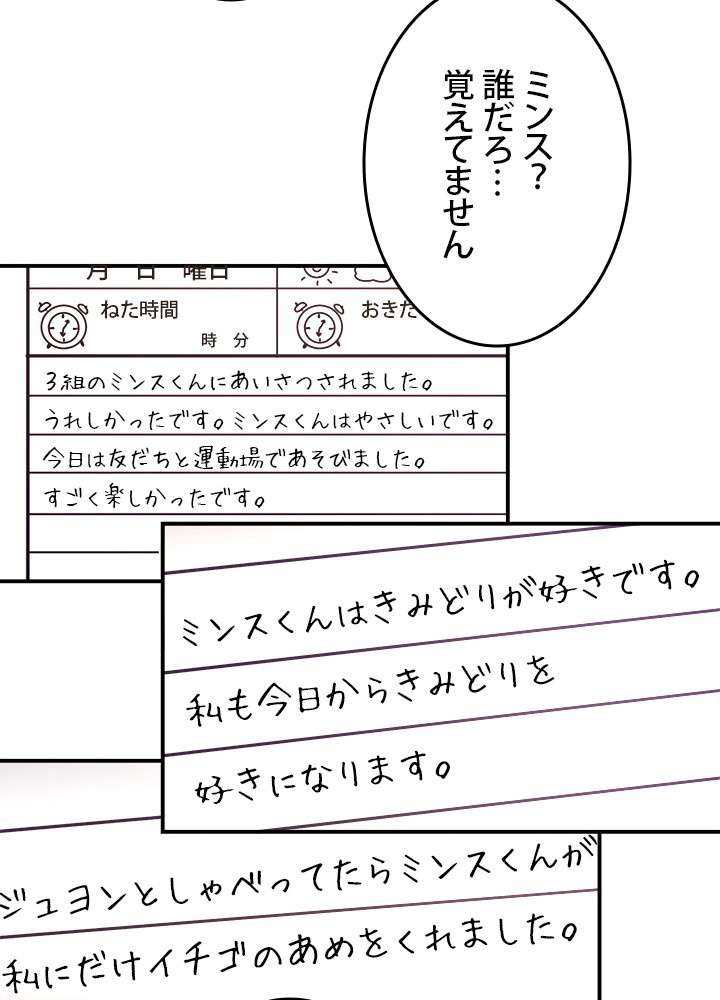 ミンス？
誰だろ…
覚えてません
月 日 曜日
ねた時間
時 分
おきた
3組のミンスくんにあいさつされました。
うれしかったです。ミンスくんはやさしいです。
今日は友だちと運動場であそびました。
すごく楽しかったです。
ミンスくんはきみどりが好きです。
私も今日からきみどりを
好きになります。
ジュヨンとしゃべってたらミンスくんが
私にだけイチゴのあめをくれました。